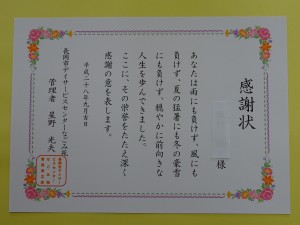 感謝状
様
あなたは雨にも負けず、風にも
負けず、夏の猛暑にも冬の豪雪
にも負けず、穏やかに前向きな
人生を歩んできました。
ここに、その栄誉をたたえ深く
感謝の意を表します。
平成二十八年九月吉日
長岡市デイサービスセンターなごみ苑
管理者 星野 光夫